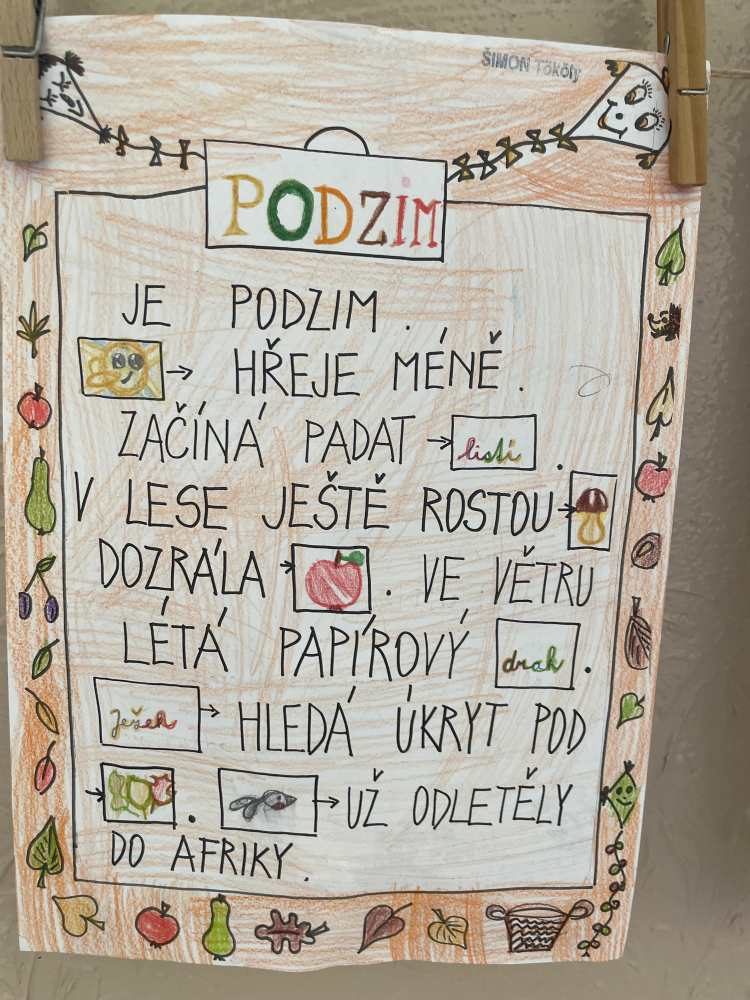 ŠIMON Tököly
PODZIM
JE PODZIM.
HŘEJE MÉNĚ.
ZAČÍNÁ PADAT listí.
V LESE JEŠTĚ ROSTOU
DOZRÁLA . VE VĚTRU
LÉTÁ PAPÍROVÝ drak.
Ježek HLEDÁ ÚKRYT POD
. UŽ ODLETĚLY
DO AFRIKY.